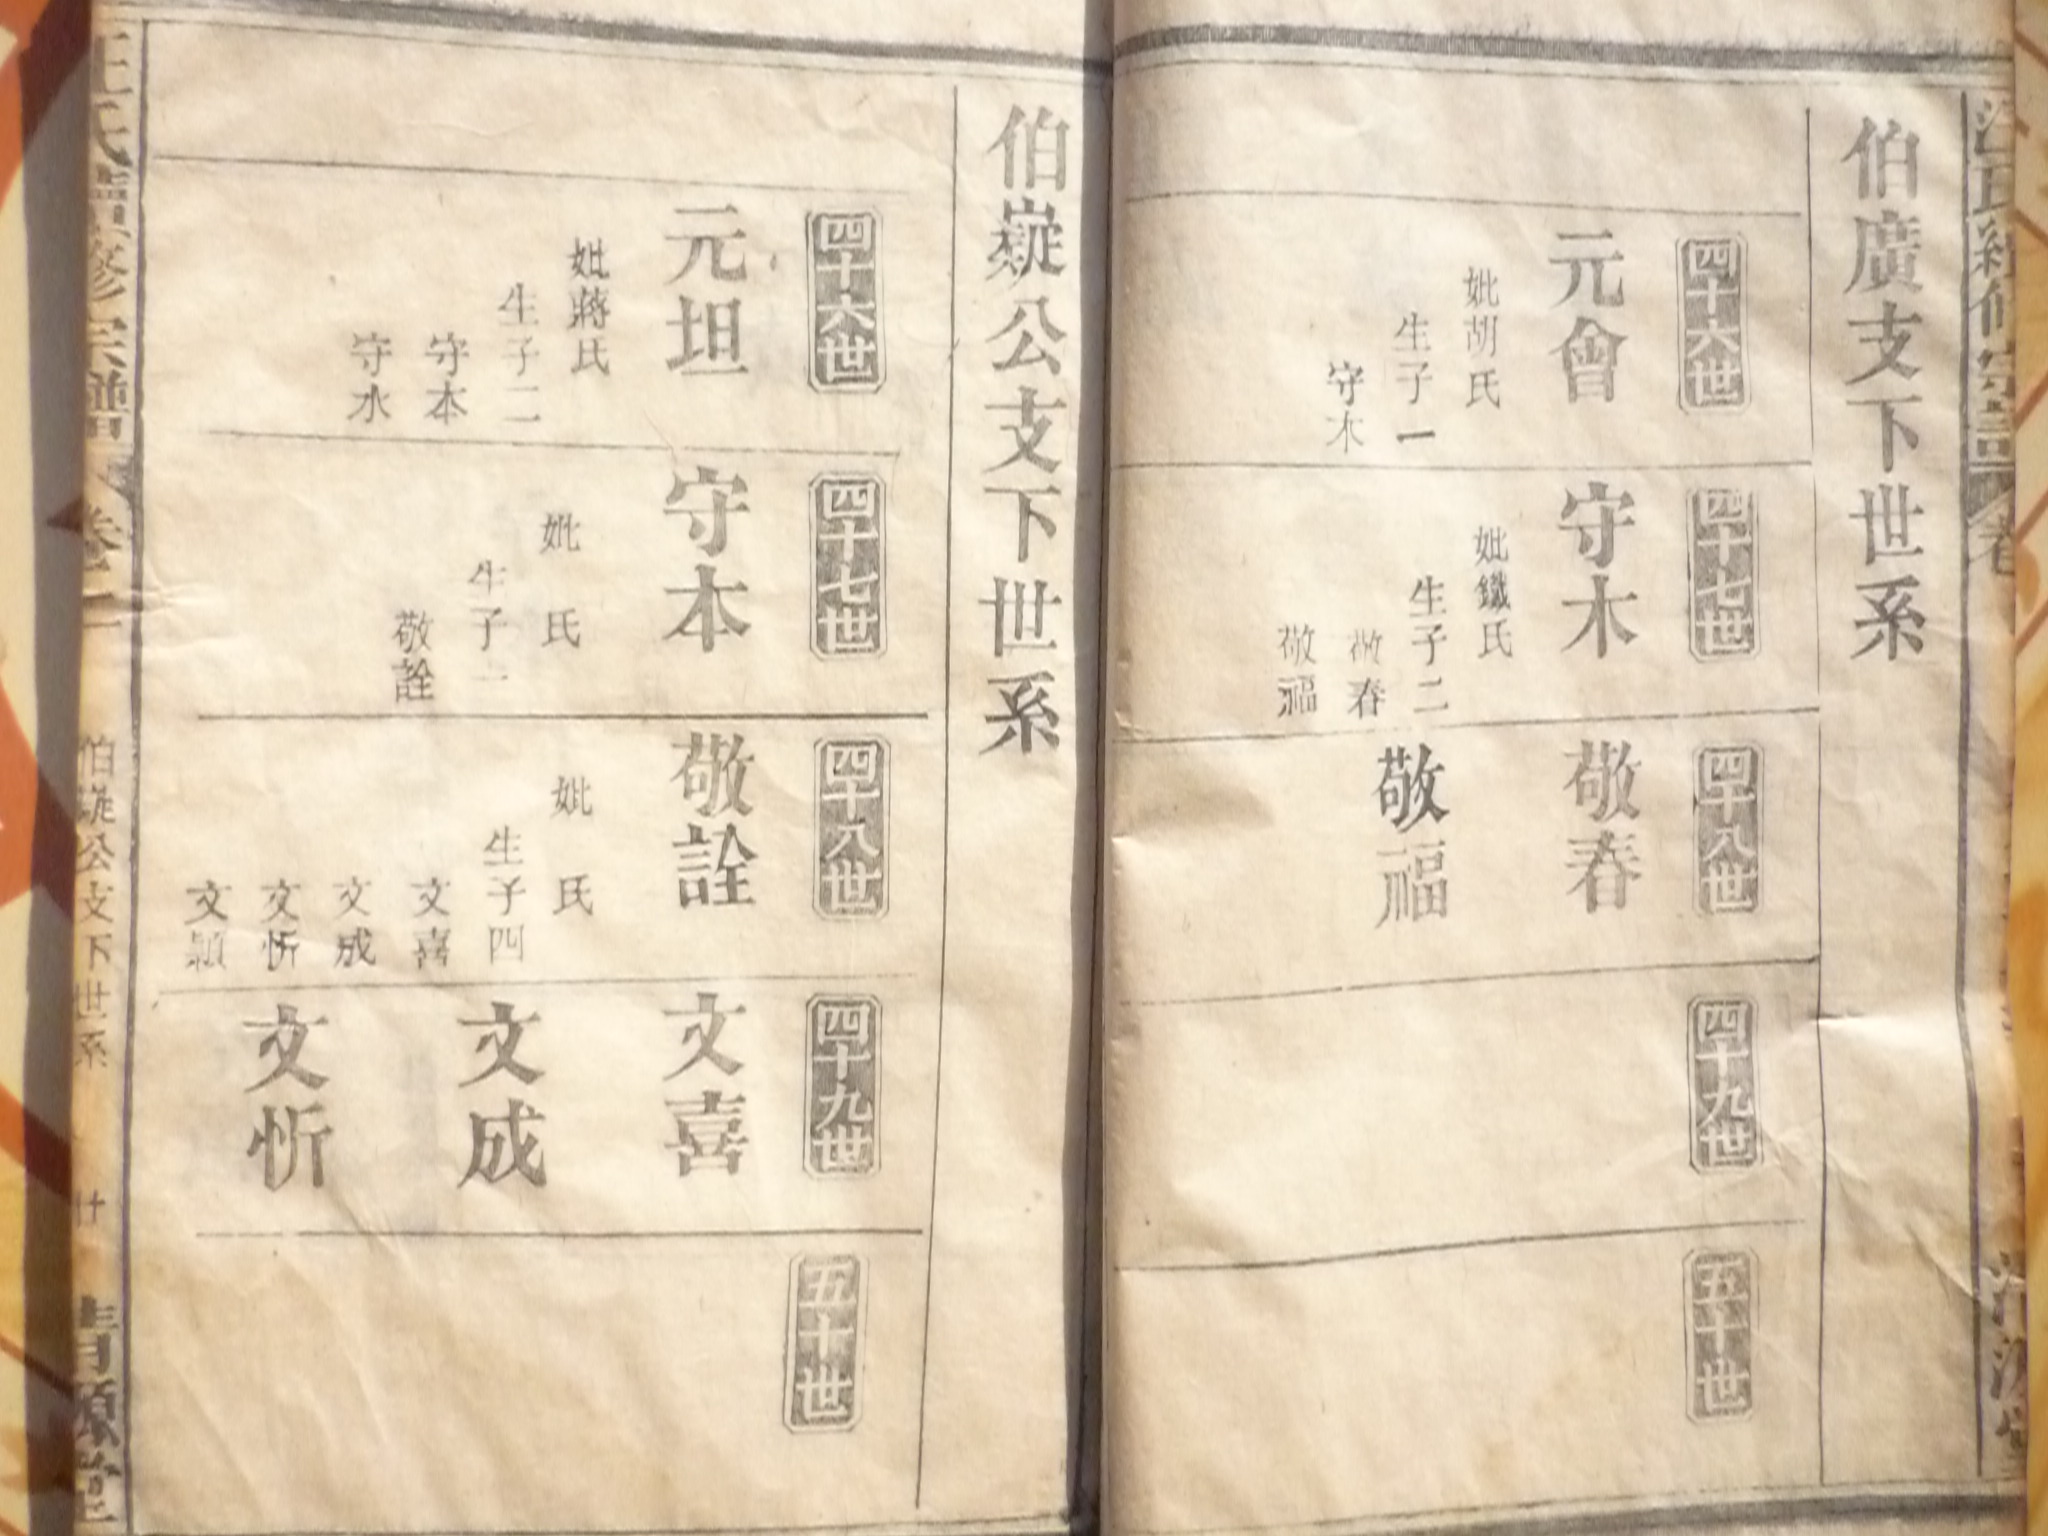 伯廣支下世系
四十六世
元會
妣胡氏
生子一
守木
四十七世
守木
妣鐵氏
生子二
敬春
敬福
四十八世
敬春
敬福
四十九世
五十世
伯嶷公支下世系
四十六世
元坦
妣蔣氏
生子二
守本
守水
四十七世
守本
妣 氏
生子一
敬詮
四十八世
敬詮
妣 氏
生子四
文喜
文成
文忻
文穎
四十九世
文喜
文成
文忻
五十世
氏續修宗譜 卷二 伯嶷公支下世系 廿 清源堂